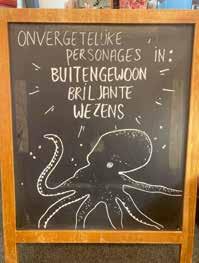 ONVERGETELIJKE
PERSONAGES IN:
BUITENGEWOON
BRILJANTE
WEZENS